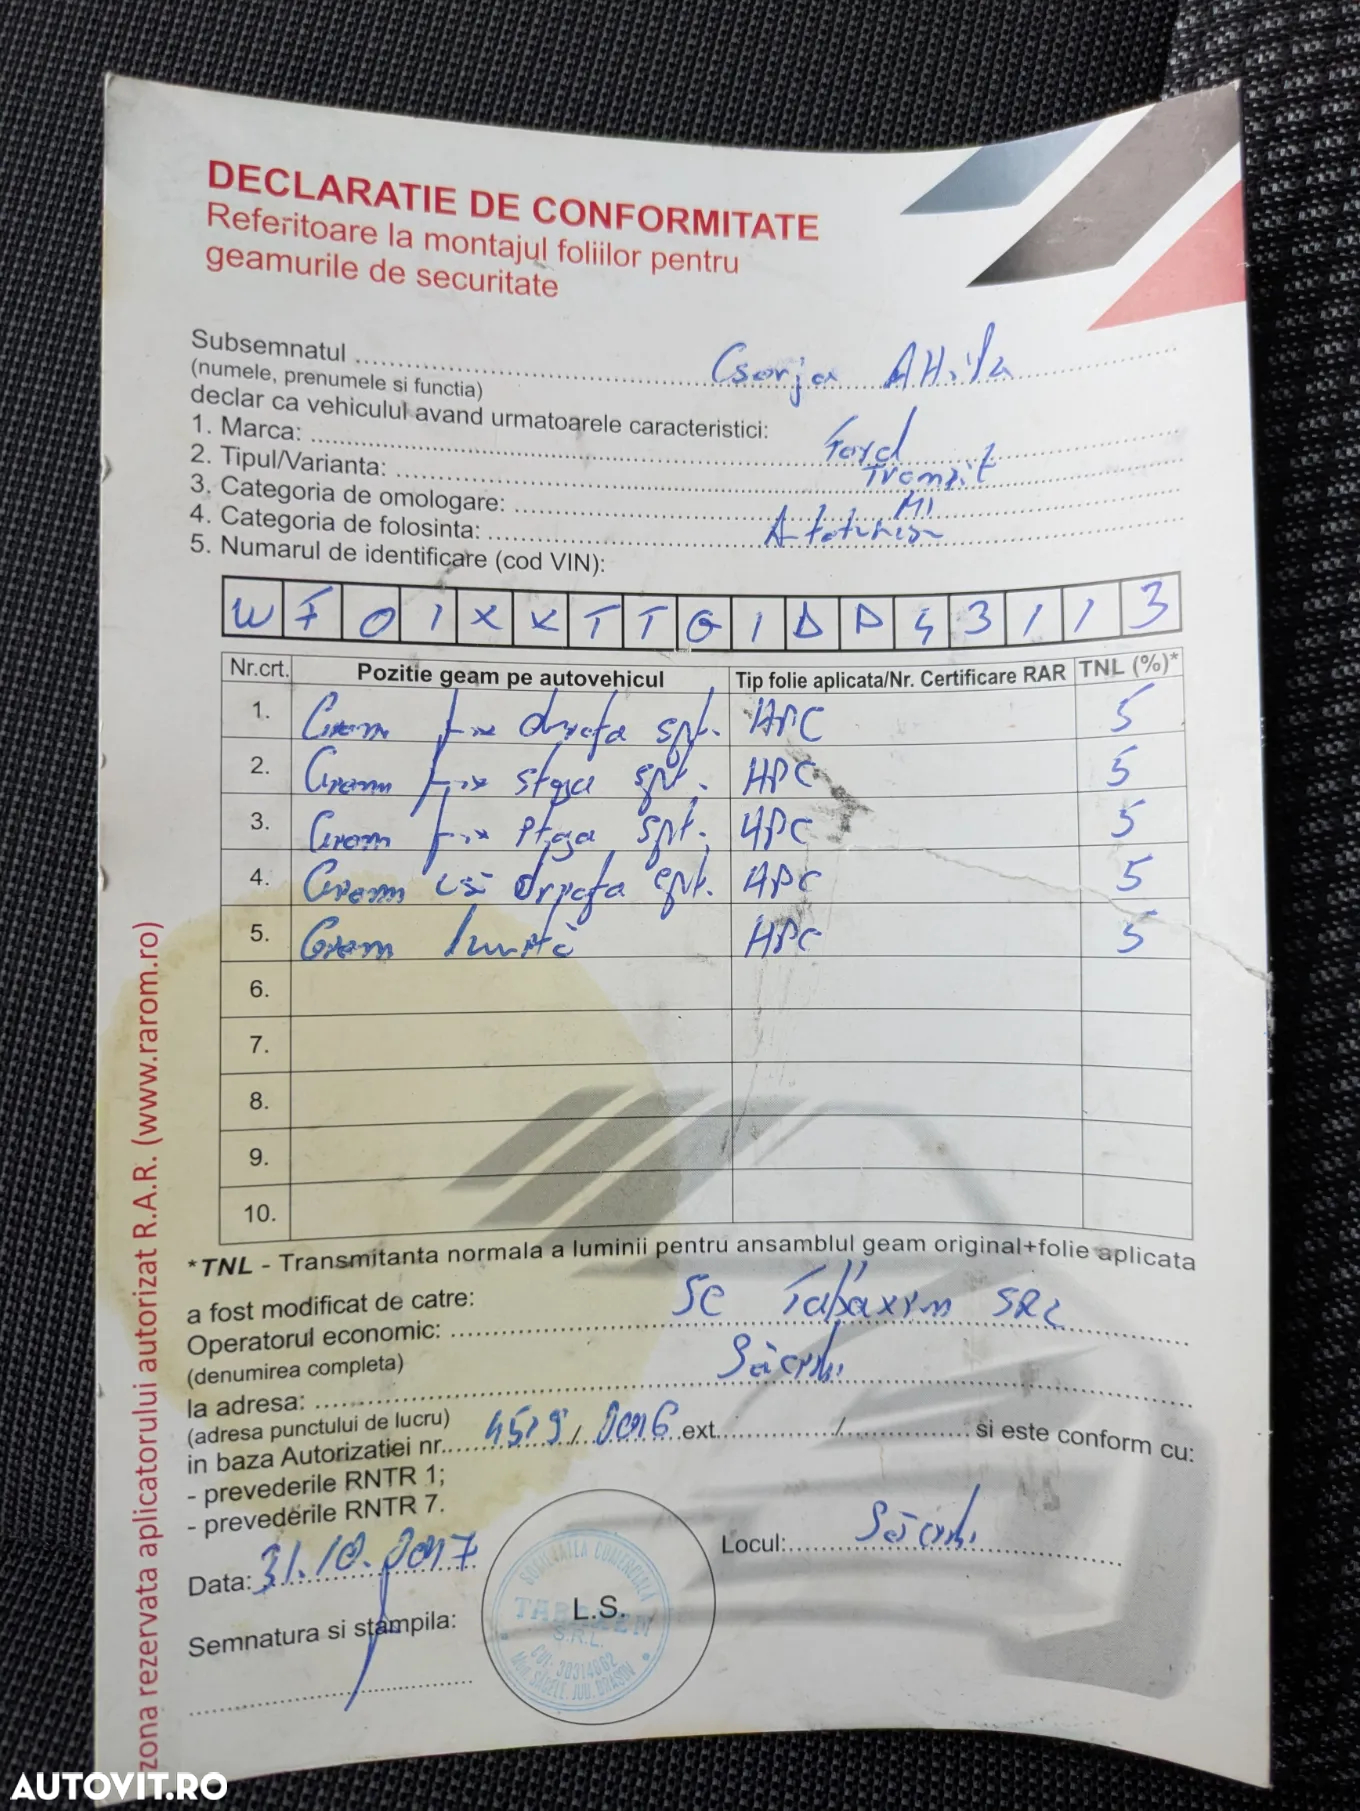 DECLARATIE DE CONFORMITATE
Referitoare la montajul foliilor pentru
geamurile de securitate
Subsemnatul Csorja Attila
(numele, prenumele si functia)
declar ca vehiculul avand urmatoarele caracteristici:
1. Marca: Ford
2. Tipul/Varianta: Tranzit
3. Categoria de omologare: M1
4. Categoria de folosinta:
5. Numarul de identificare (cod VIN):
W F 0 1 X X T T G 1 D P 4 3 1 1 3
Nr.crt. Pozitie geam pe autovehicul Tip folie aplicata/Nr. Certificare RAR TNL (%)*
1. Geam fix dreapta spt. HPC 5
2. Geam fix stga spt. HPC 5
3. Geam fix stga spt. HPC 5
4. Geam uşă dreapta spt. HPC 5
5. Geam lunetă HPC 5
6.
7.
8.
9.
10.
*TNL - Transmitanta normala a luminii pentru ansamblul geam original+folie aplicata
a fost modificat de catre:
Operatorul economic: SC SRL
(denumirea completa)
la adresa: Săcele
(adresa punctului de lucru)
in baza Autorizatiei nr. 4519 / 2016 ext. / si este conform cu:
- prevederile RNTR 1;
- prevederile RNTR 7.
Data: 31.10.2017
Locul: Săcele
Semnatura si stampila:
L.S.
SOCIETATEA COMERCIALA
S.R.L.
CUI: 30314662
Mun. SACELE JUD. BRASOV
zona rezervata aplicatorului autorizat R.A.R. (www.rarom.ro)
AUTOVIT.RO